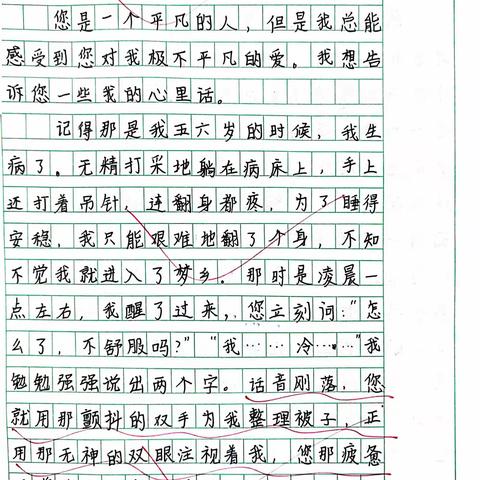 您是一个平凡的人，但是我总能
感受到您对我极不平凡的爱。我想告
诉您一些我的心里话。
记得那是我五六岁的时候，我生
病了。无精打采地躺在病床上，手上
还打着吊针，连翻身都疼，为了睡得
安稳，我只能艰难地翻了个身，不知
不觉我就进入了梦乡。那时是凌晨一
点左右，我醒了过来，您立刻问："怎
么了，不舒服吗？""我……冷……"我
勉勉强强说出两个字。话音刚落，您
就用那颤抖的双手为我整理被子，正
用那无神的双眼注视着我，您那疲惫